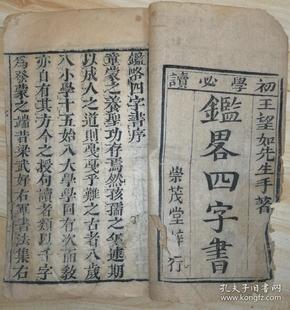 初學必讀
王望如先生手著
鑑畧四字書
崇茂堂梓行
鑑略四字書序
童蒙之養聖功存焉然孩孺之年遽期
以成人之道則戞戞乎難之古者八歲
入小學十五始入大學學固有次而教
亦自有其方今之授句讀者類以千字
為發蒙之端昔梁武好右軍書法集右
孔夫子旧书网